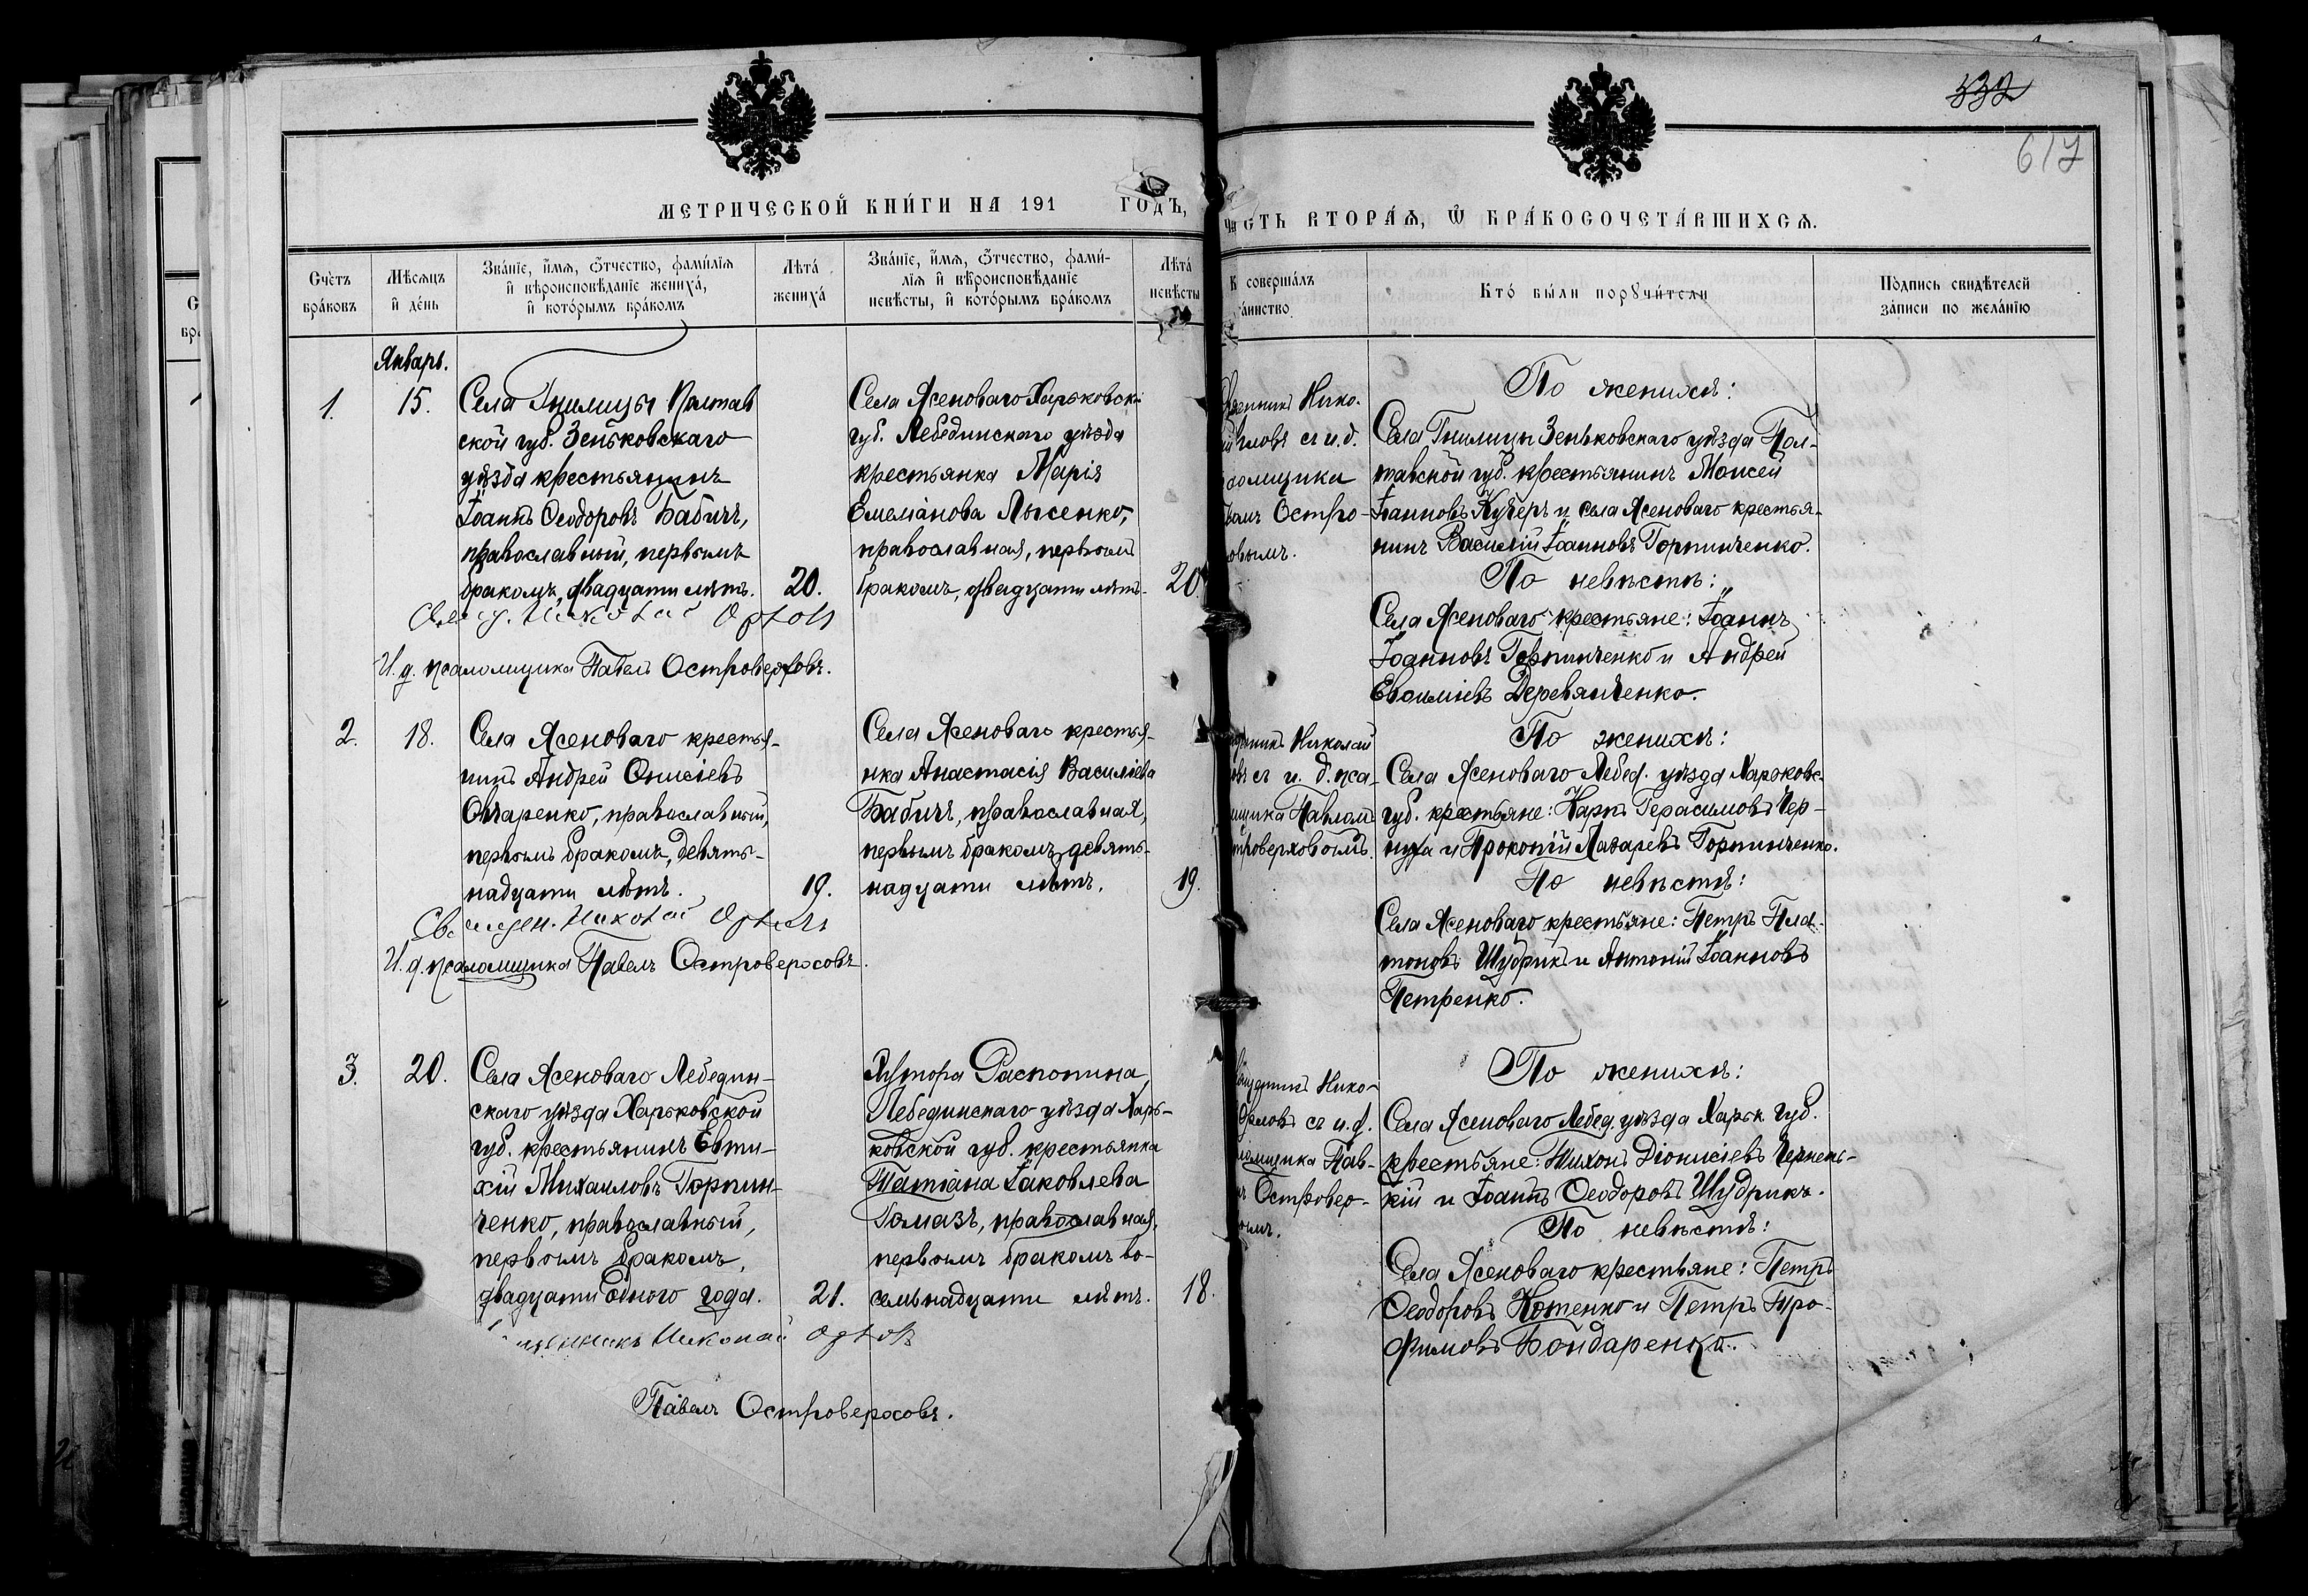 532
617
МЕТРИЧЕСКОЙ КНИ́ГИ НА 191 ГОДЪ,
ЧАСТЬ ВТОРА́Я, Ѡ БРА́КОСОЧЕТА́ВШИХСЯ.
Счетъ браковъ
Мѣсяцъ и день
Зва́нїе, и́мя, ѻ́тчество, фами́лїя и вѣроисповѣданїе жениха́, и кото́рымъ бра́комъ
Лѣта́ жениха́
Зва́нїе, и́мя, ѻ́тчество, фами́лїя и вѣроисповѣданїе невѣсты, и кото́рымъ бра́комъ
Лѣта́ невѣсты
совершáлъ
таинство
Кто́ бы́ли порꙋчи́тели
Подпись свидѣтелей за́писи по жела́нїю
Январь.
1.
15.
Села Гнилицы Полтав
ской губ. Зеньковскаго
уѣзда крестьянинъ
Іоаннъ Ѳеодоровъ Бабичъ,
православный, первымъ
бракомъ, двадцати лѣтъ.
20.
Села Ясеноваго Харьковск.
губ. Лебединскаго уѣзда
крестьянка Марія
Емеліанова Лысенко,
православная, первымъ
бракомъ, двадцати лѣтъ.
20
Николай Орловъ
И. д. псаломщика Павелъ Островерховъ.
Нико-
рловъ съ и. д.
аломщика
Остро-
овымъ.
По женихѣ:
Села Гнилицы Зеньковскаго уѣзда Пол-
тавской губ. крестьянинъ Моисей
Іоанновъ Кучеръ и села Ясеноваго крестья-
нинъ Василій Іоанновъ Горпинченко.
По невѣстѣ:
Села Ясеноваго крестьяне: Іоаннъ
Іоанновъ Горпинченко и Андрей
Евѳиміевъ Деревянченко.
2.
18.
Села Ясеноваго крестья-
нинъ Андрей Онисіевъ
Овчаренко, православный,
первымъ бракомъ, девять-
надцати лѣтъ.
19.
Села Ясеноваго крестья-
нка Анастасія Василіева
Бабичъ, православная,
первымъ бракомъ, девять-
надцати лѣтъ.
19.
Священ. Николай Орловъ
И. д. псаломщика Павелъ Островерховъ.
Николай
овъ съ и. д. пса-
мщика Павломъ
строверховымъ.
По женихѣ:
Села Ясеноваго Лебед. уѣзда Харьковс.
губ. крестьяне: Карпъ Герасимовъ Чер-
нуха и Прокопій Лазаревъ Горпинченко.
По невѣстѣ:
Села Ясеноваго крестьяне: Петръ Пла-
тоновъ Шудрикъ и Антоній Іоанновъ
Петренко.
3.
20.
Села Ясеноваго Лебедин-
скаго уѣзда Харьковской
губ. крестьянинъ Евти-
хій Михаиловъ Горпин-
ченко, православный,
первымъ бракомъ,
двадцати одного года.
21.
Хутора Распопина,
Лебединскаго уѣзда Харь-
ковской губ. крестьянка
Татіана Іаковлева
Гомазъ, православная,
первымъ бракомъ во-
семьнадцати лѣтъ.
18.
Николай Орловъ
Павелъ Островерховъ.
Нико-
Орловъ съ и. д.
ломщика Пав-
Островер-
ымъ.
По женихѣ:
Села Ясеноваго Лебед. уѣзда Харьк. губ.
крестьяне: Тихонъ Діонисіевъ Чернець-
кій и Іоаннъ Ѳеодоровъ Шудрикъ.
По невѣстѣ:
Села Ясеноваго крестьяне: Петръ
Ѳеодоровъ Котенко и Петръ Тро-
фимовъ Бондаренко.